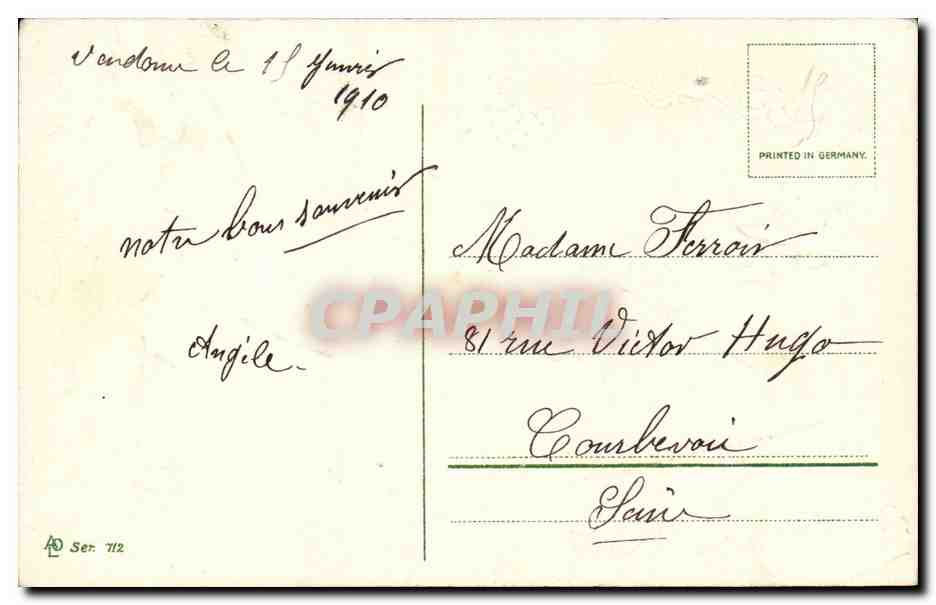 Vendome le 15 Janvier
1910
notre bons souvenir
Angèle
15
PRINTED IN GERMANY.
Madame Ferroir
81 rue Victor Hugo
Courbevoie
Seine
CPAPHIL
Ser. 712